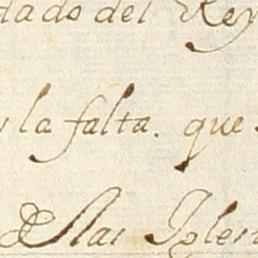 dado del Rey
y la falta. que
Las Igles